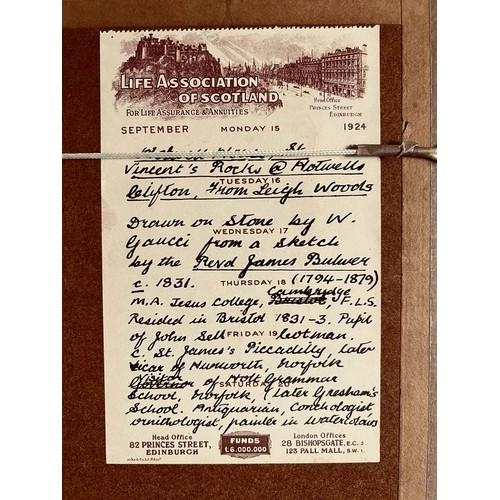 LIFE ASSOCIATION
OF SCOTLAND
FOR LIFE ASSURANCE & ANNUITIES
Head Office
PRINCES STREET
EDINBURGH
SEPTEMBER MONDAY 15 1924
St.
Vincent's Rocks @ Hotwells
TUESDAY 16
Clifton, From Leigh Woods
Drawn on Stone by W.
WEDNESDAY 17
Gauci from a Sketch
by the Revd James Bulwer
c. 1831. THURSDAY 18 (1794-1879)
Cambridge
M.A. Jesus College, Bristol, F.L.S.
Resided in Bristol 1831-3. Pupil
of John Sell FRIDAY 19 Cotman.
C. St. James's Piccadilly, later
Vicar of Hunworth, Norfolk
Visitor
Governor of Holt Grammar
SATURDAY 20
School, Norfolk, (later Gresham's
School. Antiquarian, Conchologist,
ornithologist, painter in Watercolours
Head Office
82 PRINCES STREET,
EDINBURGH
FUNDS
£6.000.000
London Offices
28 BISHOPSGATE, E.C. 2
123 PALL MALL, S.W. 1